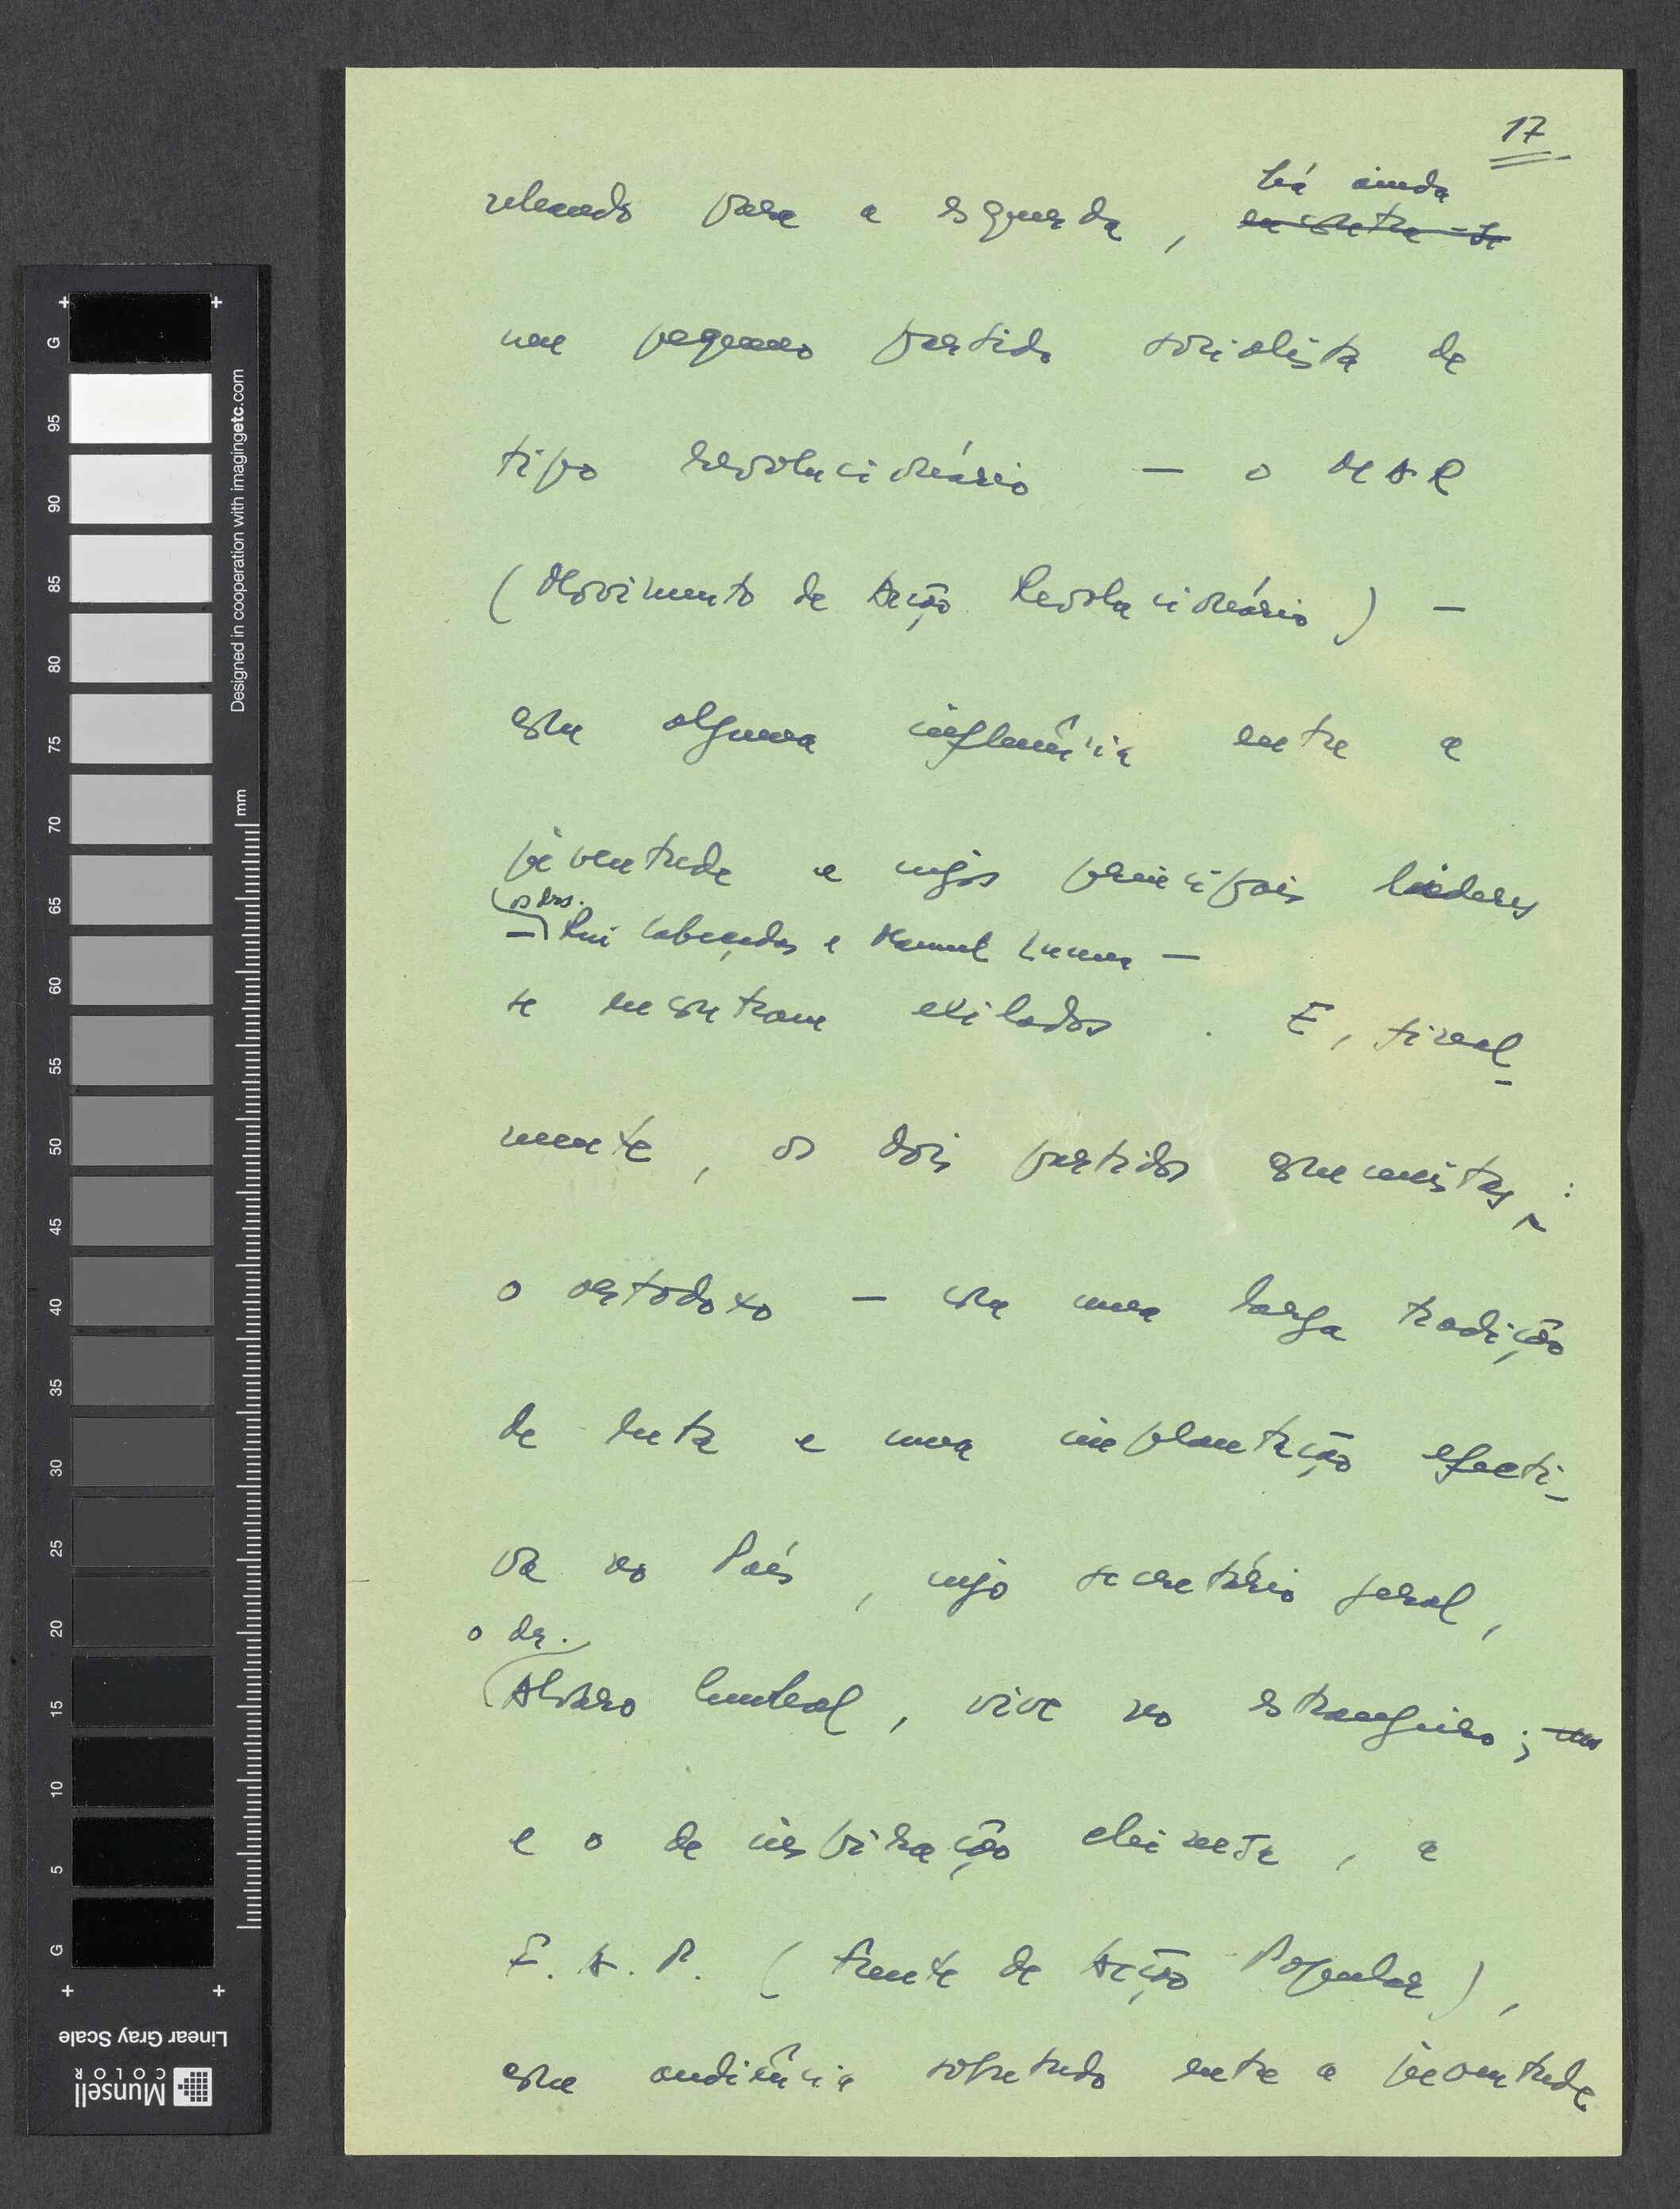 17
há ainda
para a esquerda, encontra-se
um pequeno partido socialista de
tipo revolucionário — o MAR
(Movimento de Acção Revolucionário) —
com alguma influência entre a
juventude e cujos principais líderes
os drs.
— Rui Cabeçadas e Manuel Lucena —
se encontram exilados. E, final-
mente, os dois partidos comunistas:
o ortodoxo — com uma larga tradição
de luta e uma implantação efecti-
va no País, cujo secretário geral,
o dr.
Alvaro Cunhal, vive no estrangeiro;
e o de inspiração chinesa, a
F.A.P. (Frente de Acção Popular),
com audiência sobretudo entre a juventude
G
95
90
85
80
75
70
65
60
55
50
45
40
35
30
25
20
15
10
5
G
mm
Designed in cooperation with imagingetc.com
Linear Gray Scale
Munsell
COLOR